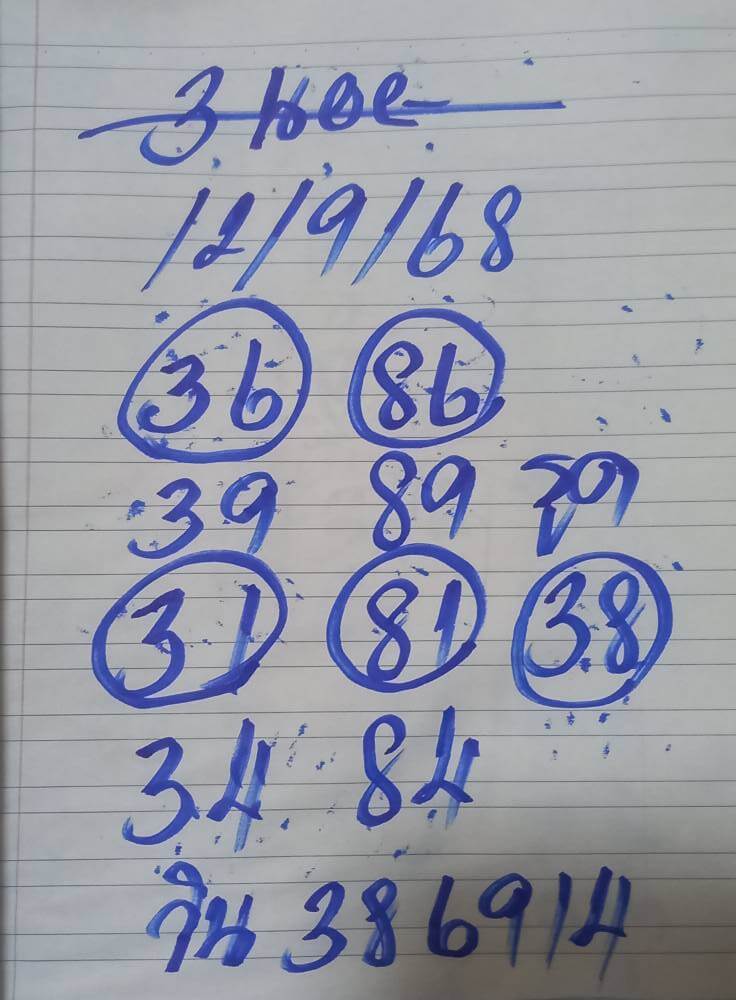 3 นอย
12/9/68
36 86
39 89 จุด
31 81 38
34 84
วิน 386914